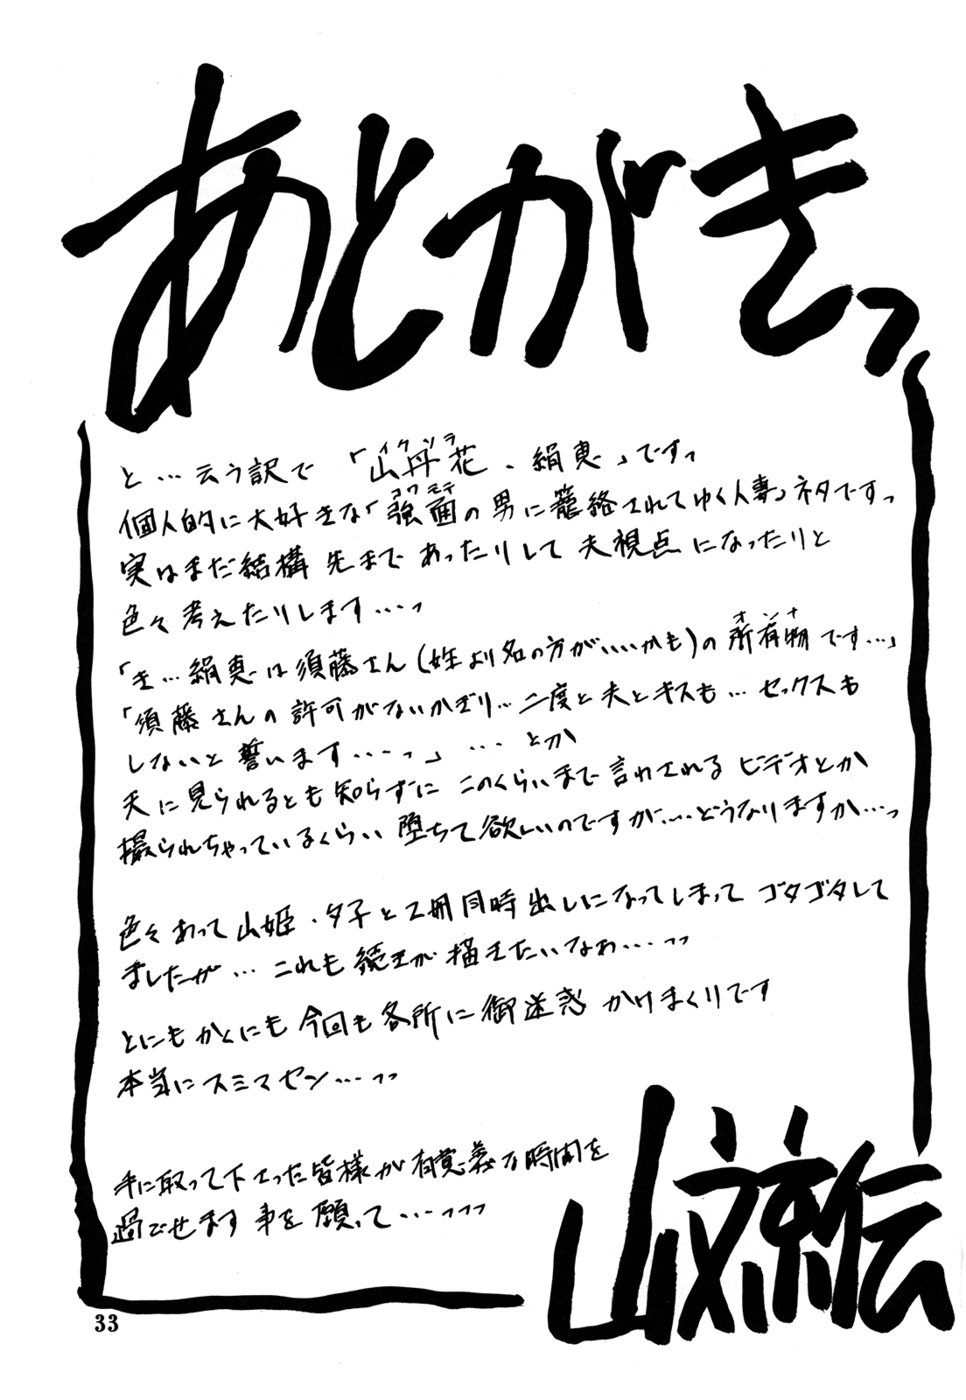 あとがきっ
と…云う訳で「山丹花、絹恵」ですっ
イクンラ
個人的に大好きな「強面の男に籠絡されてゆく人妻」ネタですっ
コワモテ
実はまだ結構先まであったりして夫視点になったりと
色々考えたりします…っ
「き…絹恵は須藤さん(姓より名の方がいいかも)の所有物です…」
オンナ
「須藤さんの許可がないかぎり…二度と夫とキスも…セックスも
しないと誓います……っ」…とか
夫に見られるとも知らずにこのくらいまで言わされるビデオとか
撮られちゃっているくらい堕ちて欲しいのですが……どうなりますか…っ
色々あって山姫・夕子と2冊同時出しになってしまってゴタゴタして
ましたが…これも続きが描きたいなぁ…っっ
とにもかくにも今回も各所に御迷惑かけまくりです
本当にスミマセン…っっ
手に取って下さった皆様が有意義な時間を
過ごせます事を願って…っっっ
山文京伝
33